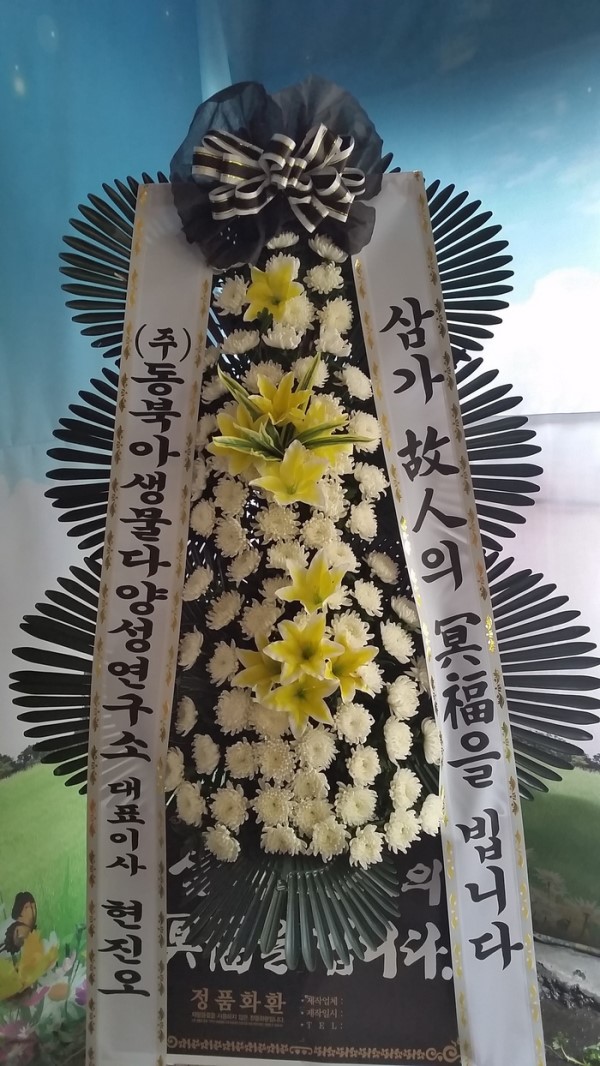 (주)동북아생물다양성연구소 대표이사 현진오
삼가 故人의 冥福을 빕니다
의
冥福을 빕니다.
정품화환
•제작업체 :
•제작일시 :
•T E L :